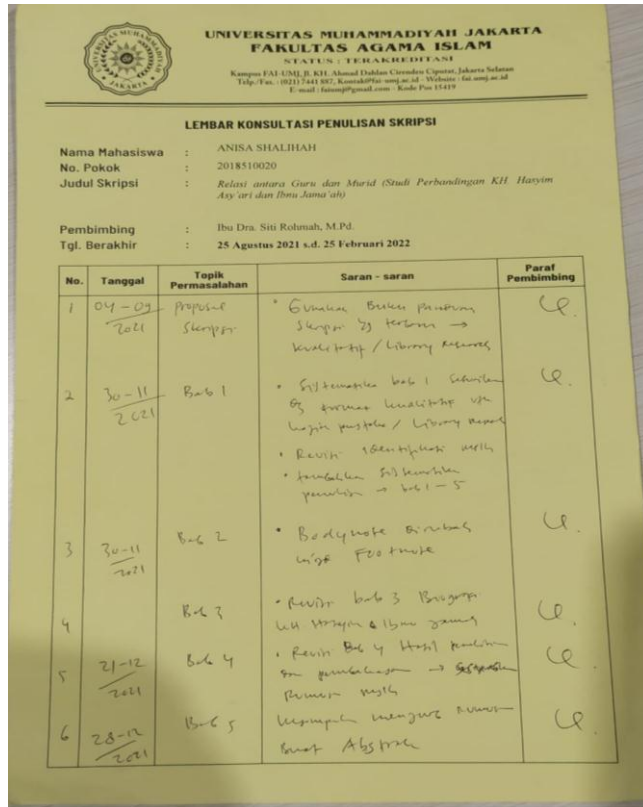 UNIVERSITAS MUHAMMADIYAH JAKARTA
FAKULTAS AGAMA ISLAM
STATUS : TERAKREDITASI
Kampus FAI-UMJ, Jl. KH. Ahmad Dahlan Cirendeu Ciputat, Jakarta Selatan
Telp./Fax. : (021) 7441 887, Kontak@fai-umj.ac.id - Website : fai.umj.ac.id
E-mail : faiumj@gmail.com - Kode Pos 15419
LEMBAR KONSULTASI PENULISAN SKRIPSI
Nama Mahasiswa : ANISA SHALIHAH
No. Pokok : 2018510020
Judul Skripsi : Relasi antara Guru dan Murid (Studi Perbandingan KH. Hasyim
Asy'ari dan Ibnu Jama'ah)
Pembimbing : Ibu Dra. Siti Rohmah, M.Pd.
Tgl. Berakhir : 25 Agustus 2021 s.d. 25 Februari 2022
No. Tanggal Topik Permasalahan Saran - saran Paraf Pembimbing
1 04-09 Proposal • Gunakan Buku panduan
2021 Skripsi Skripsi yg terbaru →
kualitatif / Library Research
2 30-11 Bab 1 • Sistematika bab 1
2021 format kualitatif
pustaka / Library
• Revisi identifikasi
• tambahkan sistematika
penulisan → bab 1-5
3 30-11 Bab 2 • Bodynote
2021 Footnote
4 Bab 3 • Revisi bab 3 Biografi
KH Hasyim & Ibnu Jamaah
5 21-12 Bab 4 • Revisi Bab 4 Hasil penelitian
2021 dan pembahasan →
Rumusan
6 28-12 Bab 5
2021 Buat Abstrak